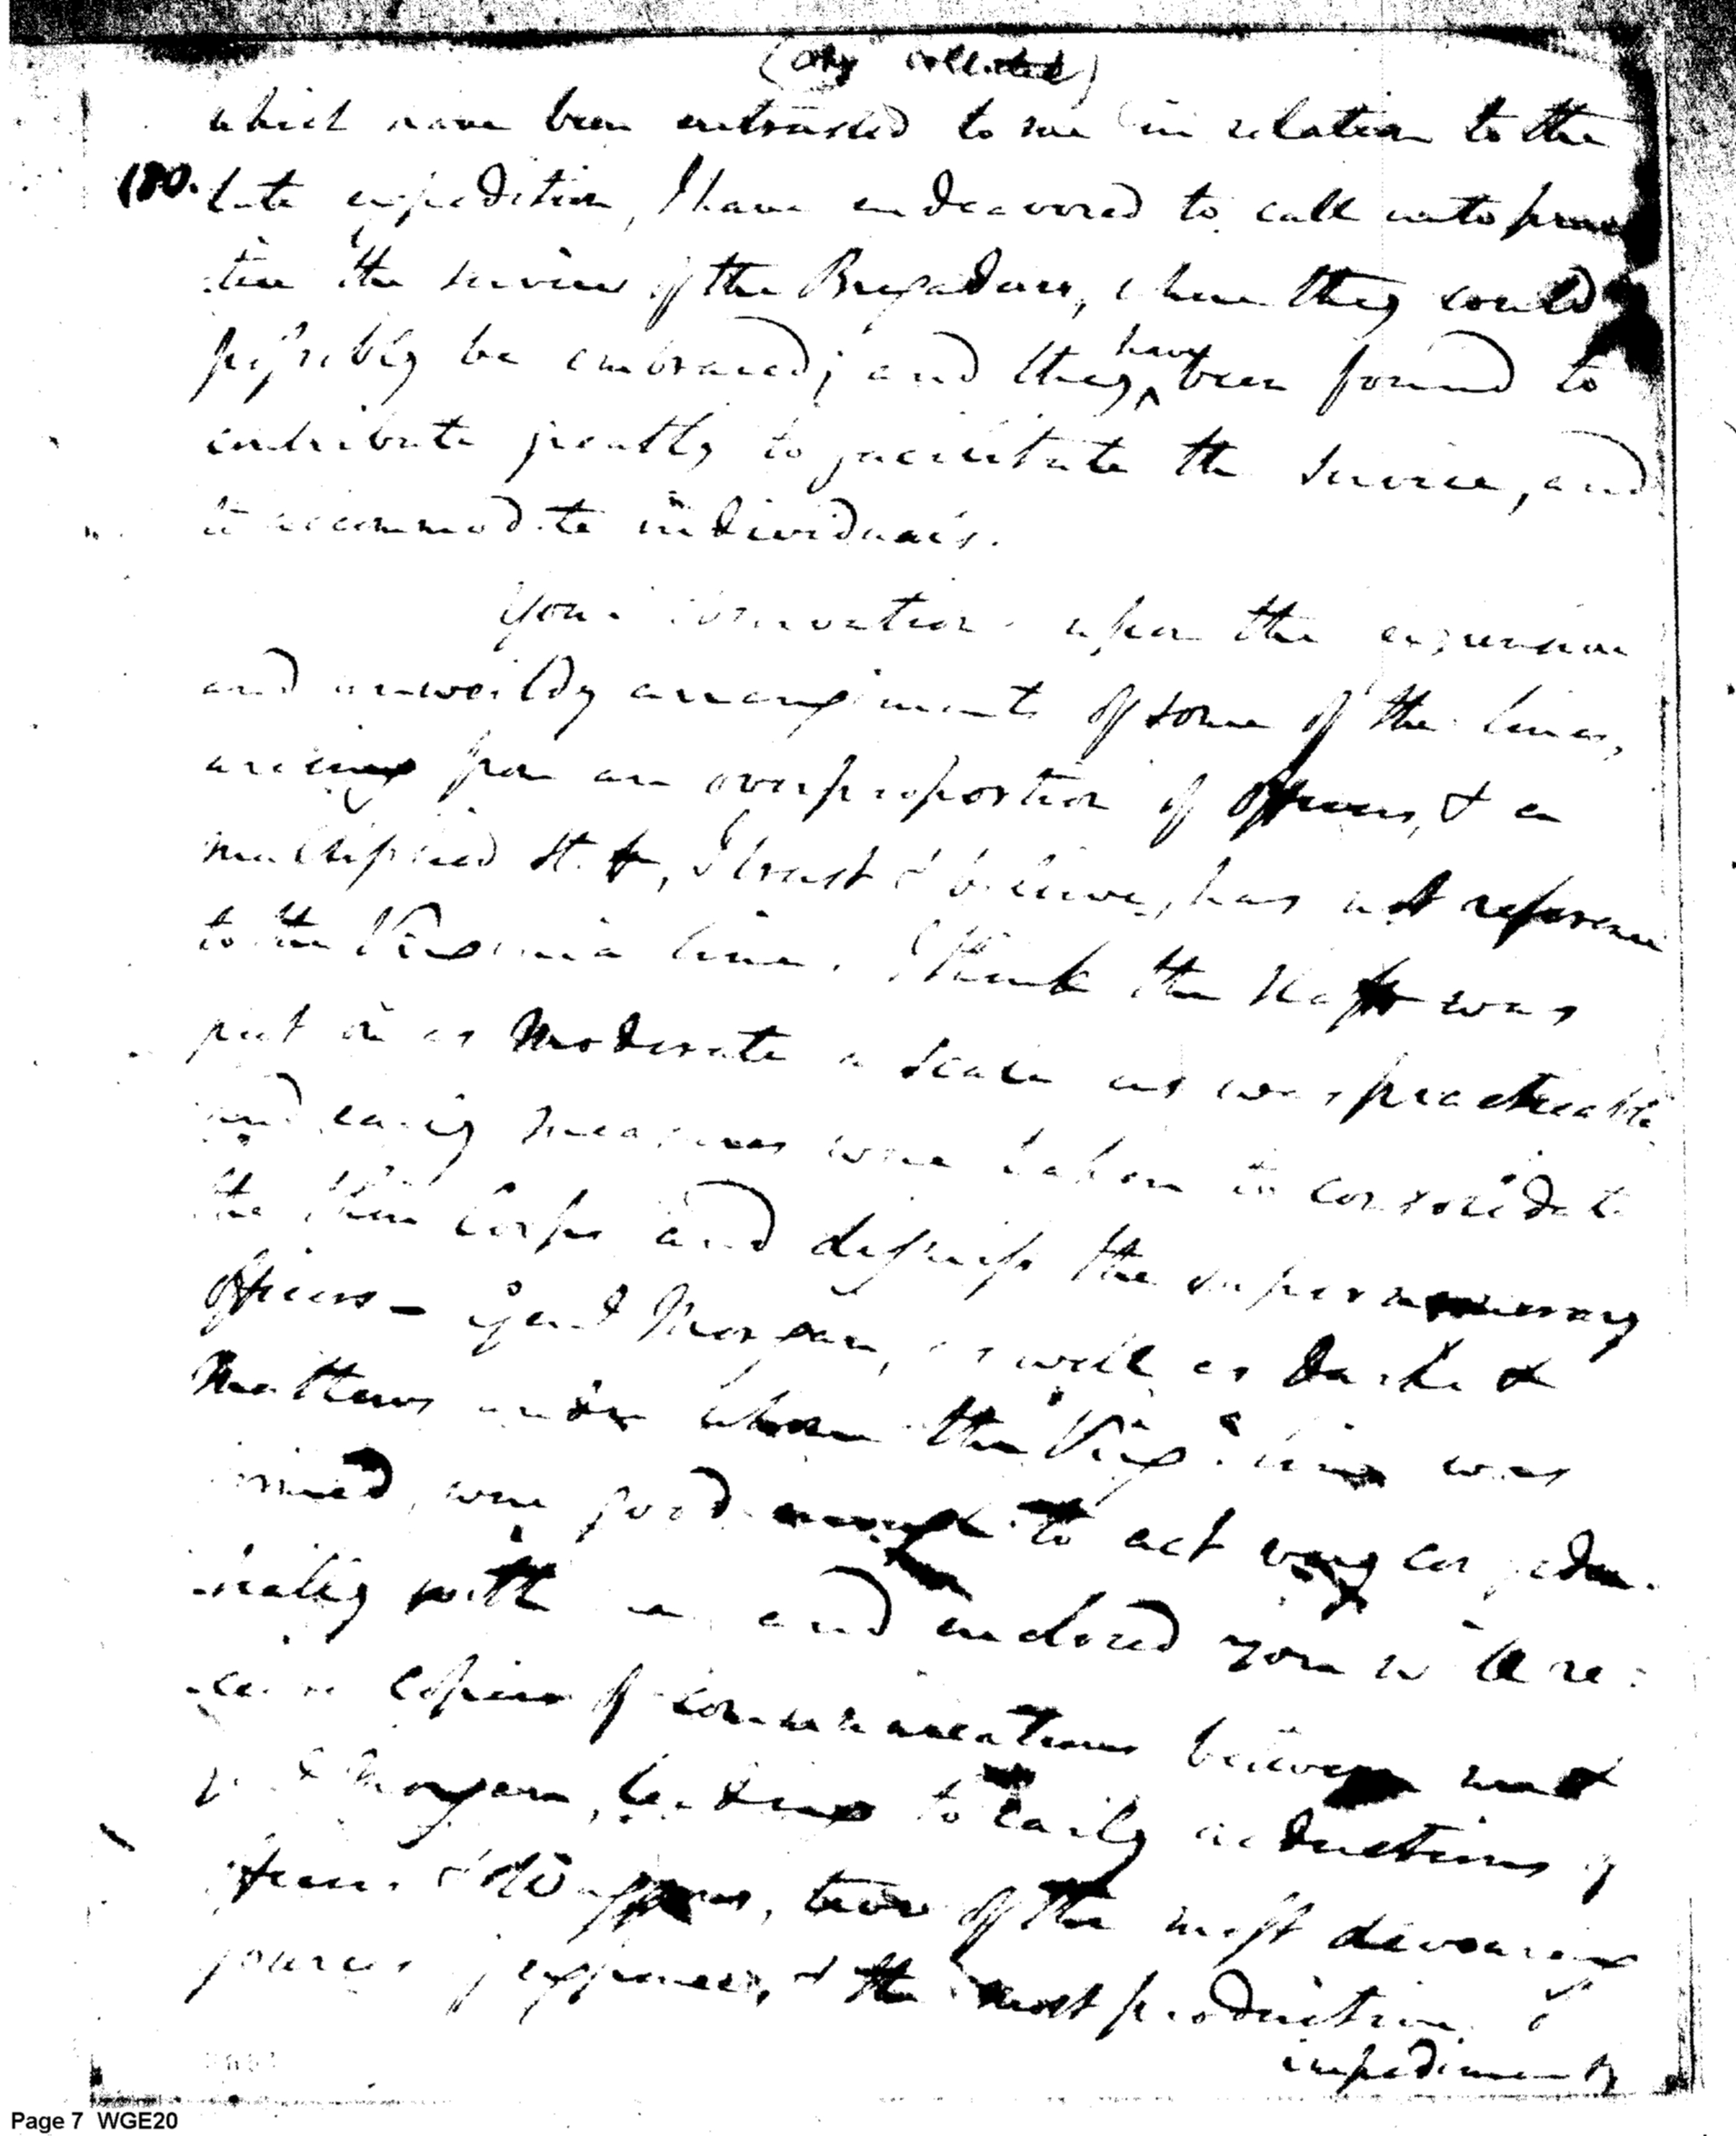 (Copy collated)
which have been entrusted to me in relation to the
180. late expedition, I have endeavored to call into prac
tice the services of the Brigadiers, where they could
possibly be embraced; and they have been found to
contribute greatly to facilitate the service, and
to accommodate individuals.
Your observations upon the expensive
and unweildy arrangements of some of the lines,
arising from an overproportion of officers, & a
multiplied staff, I trust & believe, has not reference
to the Virginia line. I think the staff was
put on as moderate a scale as was practicable
and early measures were taken to consolidate
the thin Corps and dismiss the supernumerary
officers — Genl Morgan, as well as Darke &
Mathews under whom the Virga. line was
, were good enough to act very
with me and enclosed you will re:
ceive copies of communications between me &
Genl Morgan, leading to early reductions of
officers & , two of the most devouring
sources of expence, & the most productive of
impediments
Page 7 WGE20